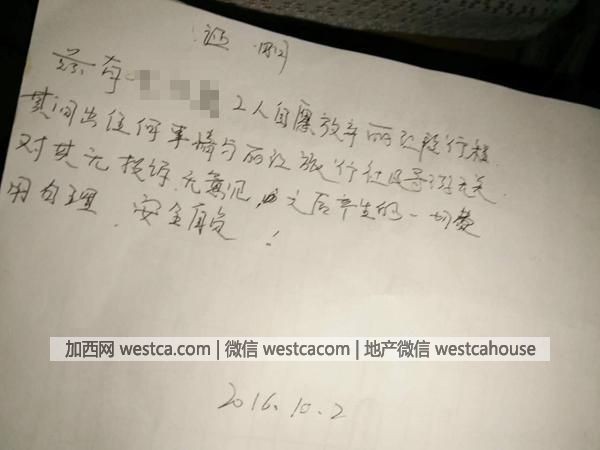 证明
兹有 2人自愿放弃丽江段行程
其间出任何事情与丽江旅行社及导游无关
对其无投诉.无意见,之后产生的一切费
用自理.安全自负!
加西网 westca.com | 微信 westcacom | 地产微信 westcahouse
2016.10.2